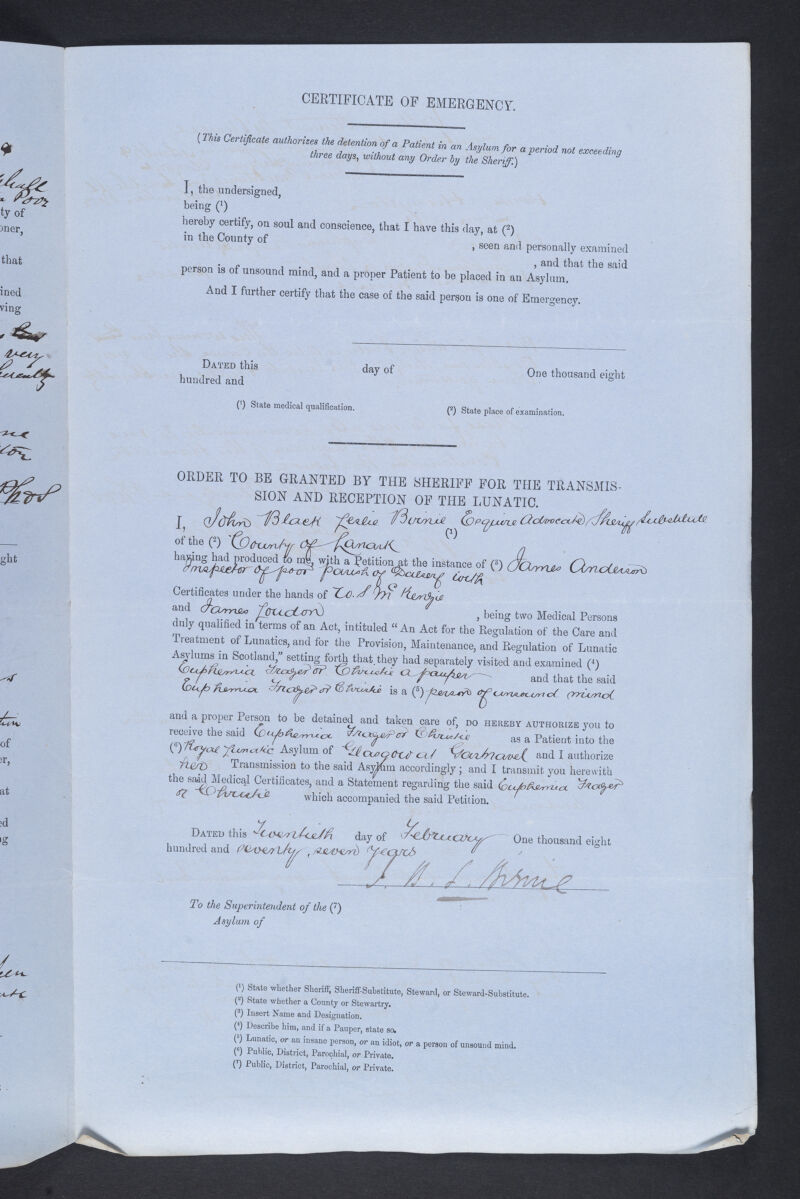 CERTIFICATE OF EMERGENCY.
(This Certificate authorizes the detention of a Patient in an Asylum for a period not exceeding
three days, without any Order by the Sheriff.)
I, the undersigned,
being (¹)
hereby certify, on soul and conscience, that I have this day, at (²)
in the County of , seen and personally examined
, and that the said
person is of unsound mind, and a proper Patient to be placed in an Asylum.
And I further certify that the case of the said person is one of Emergency.
DATED this day of One thousand eight
hundred and
(¹) State medical qualification. (²) State place of examination.
ORDER TO BE GRANTED BY THE SHERIFF FOR THE TRANSMIS-
SION AND RECEPTION OF THE LUNATIC.
I, John Black Leslie Birnie Esquire Advocate Sheriff Substitute
(¹)
of the (²) County of Lanark
having had produced to me, with a Petition at the instance of (³) James Anderson
Inspector of poor parish of Dalserf with
Certificates under the hands of W. S McKenzie
and James Loudon , being two Medical Persons
duly qualified in terms of an Act, intituled "An Act for the Regulation of the Care and
Treatment of Lunatics, and for the Provision, Maintenance, and Regulation of Lunatic
Asylums in Scotland," setting forth that they had separately visited and examined (⁴)
Euphemia Frazer or Christie a pauper and that the said
Euphemia Frazer or Christie is a (⁵) person of unsound mind
and a proper Person to be detained and taken care of, DO HEREBY AUTHORIZE you to
receive the said Euphemia Frazer or Christie as a Patient into the
(⁶) Royal Lunatic Asylum of Glasgow at Gartnavel and I authorize
her Transmission to the said Asylum accordingly; and I transmit you herewith
the said Medical Certificates, and a Statement regarding the said Euphemia Frazer
or Christie which accompanied the said Petition.
DATED this Twentieth day of February One thousand eight
hundred and seventy seven years
J. B. L. Birnie
To the Superintendent of the (⁷)
Asylum of
(¹) State whether Sheriff, Sheriff-Substitute, Steward, or Steward-Substitute.
(²) State whether a County or Stewartry.
(³) Insert Name and Designation.
(⁴) Describe him, and if a Pauper, state so.
(⁵) Lunatic, or an insane person, or an idiot, or a person of unsound mind.
(⁶) Public, District, Parochial, or Private.
(⁷) Public, District, Parochial, or Private.